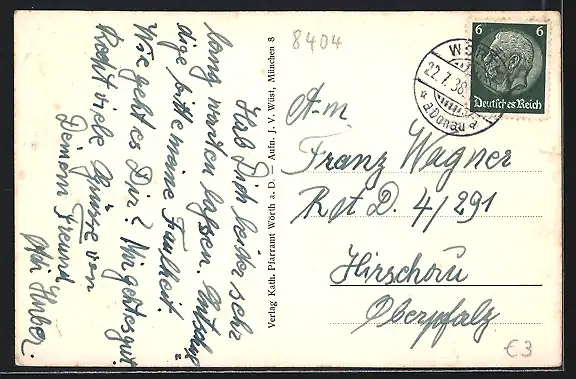 Hab Dich leider sehr
lang warten lassen. Entschul
dige bitte meine Faulheit.
Wie geht es Dir? Mir geht es gut.
Recht viele Grüsse von
Deinem Freund
Huber.
Verlag Kath. Pfarramt Wörth a. D. — Aufn. J. V. Wüst, München 8
8404
6 6
Deutsches Reich
WÖRTH
22.7.38
* a. Donau *
An
Franz Wagner
R.A.D. 4/291
Hirschau
Oberpfalz
€3